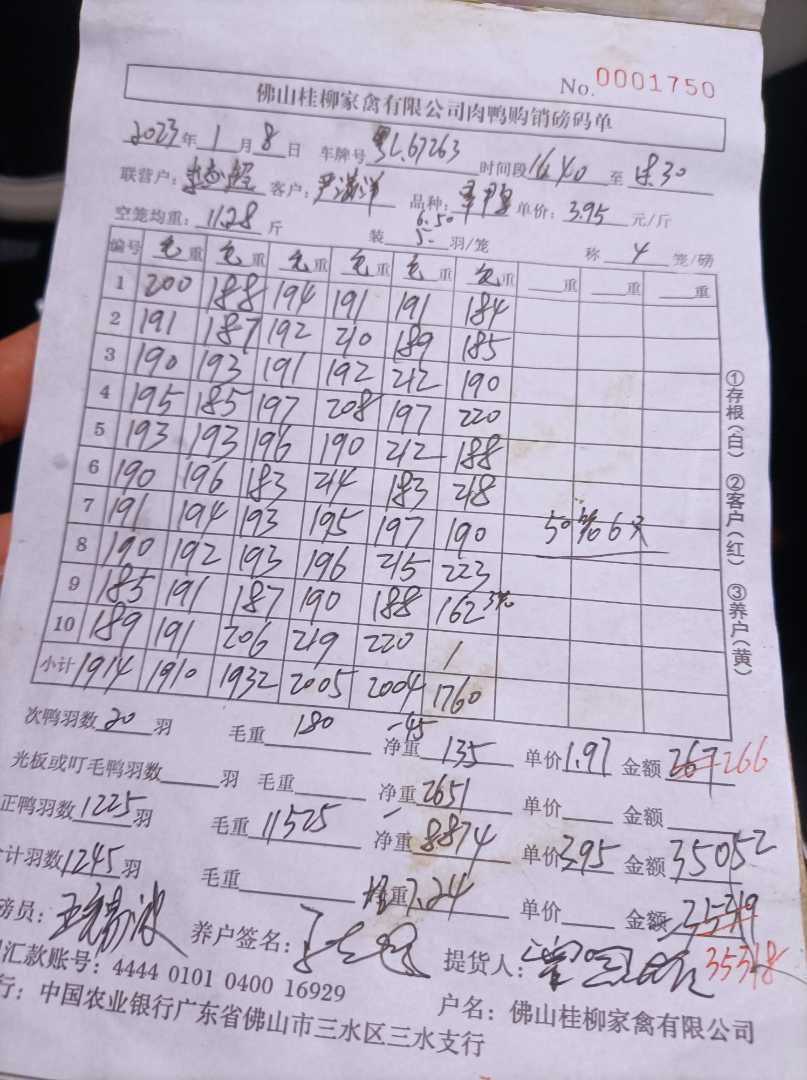 No. 0001750
佛山桂柳家禽有限公司肉鸭购销磅码单
2023年 1 月 8 日 车牌号 粤L.67263 时间段 16.40 至 18.30
联营户: 客户: 尹满洋 品种: 单价: 3.95 元/斤
空笼均重: 11.28 斤 装 6.50 5- 羽/笼 称 4 笼/磅
编号 毛重 毛重 毛重 毛重 毛重 毛重 重 重 重
1 200 188 194 191 191 184
2 191 187 192 210 189 185
3 190 193 191 192 212 190
4 195 185 197 208 197 220
5 193 193 196 190 212 188
6 190 196 183 214 183 218
7 191 194 193 195 197 190 50 6
8 190 192 193 196 215 223
9 185 191 187 190 188 162
10 189 191 206 219 220 /
小计 1914 1910 1932 2005 2004 1760
次鸭羽数 20 羽 毛重 180 -45 净重 135 单价 1.97 金额 267 266
光板或叮毛鸭羽数 羽 毛重 净重 2651 单价 金额
正鸭羽数 1225 羽 毛重 11525 净重 8874 单价 3.95 金额 35052
计羽数 1245 羽 毛重 重 7.24 单价 金额 35319
磅员: 养户签名: 提货人: 35318
汇款账号: 4444 0101 0400 16929 户名: 佛山桂柳家禽有限公司
行: 中国农业银行广东省佛山市三水区三水支行
①存根(白) ②客户(红) ③养户(黄)